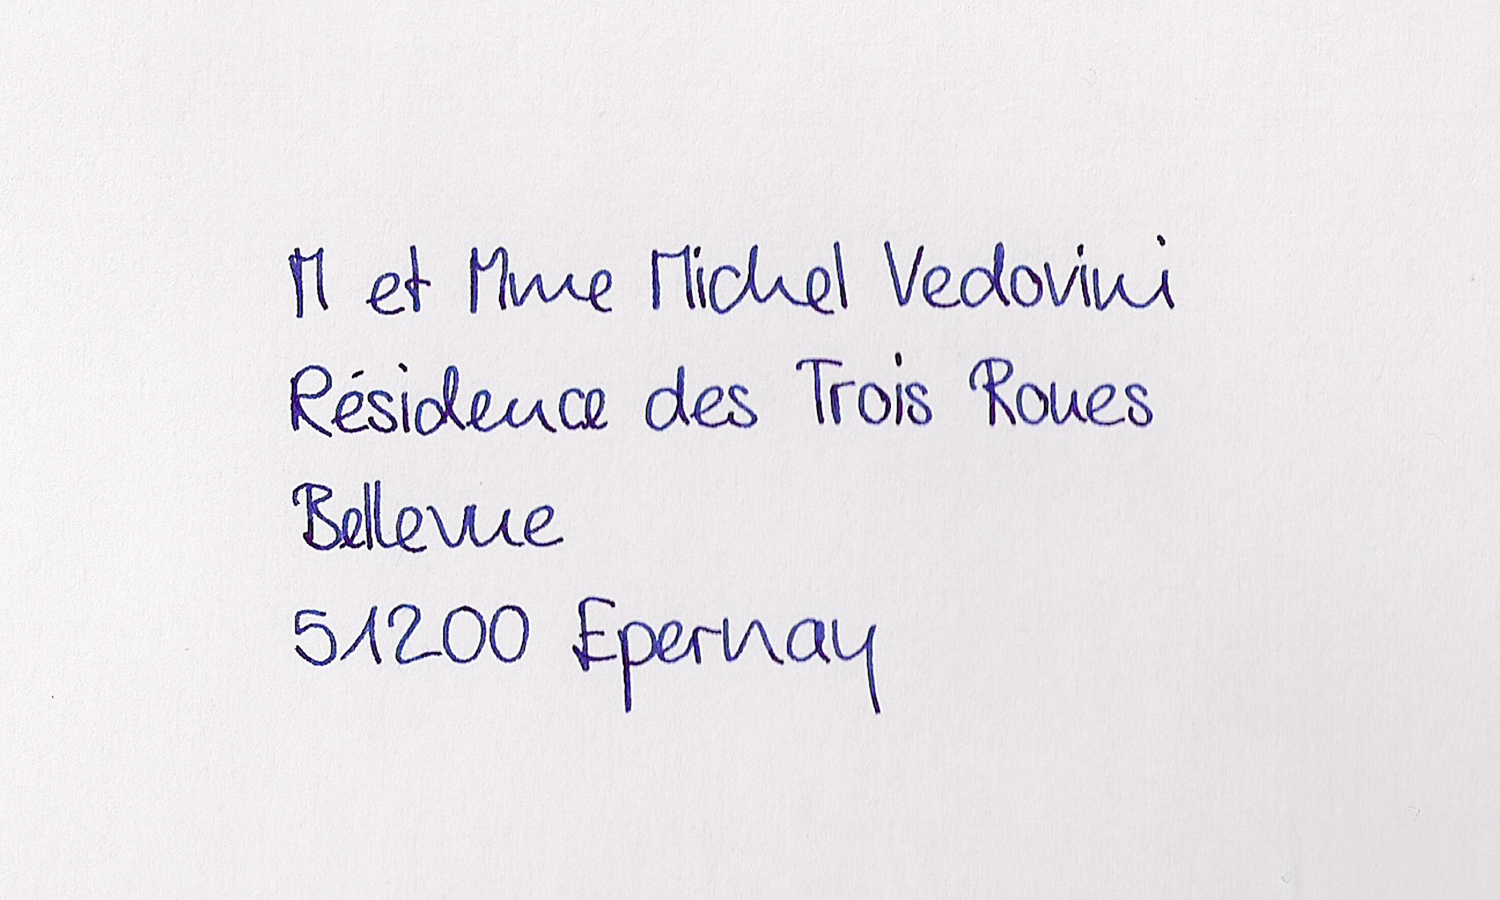 M et Mme Michel Vedovini
Résidence des Trois Roues
Bellevue
51200 Epernay